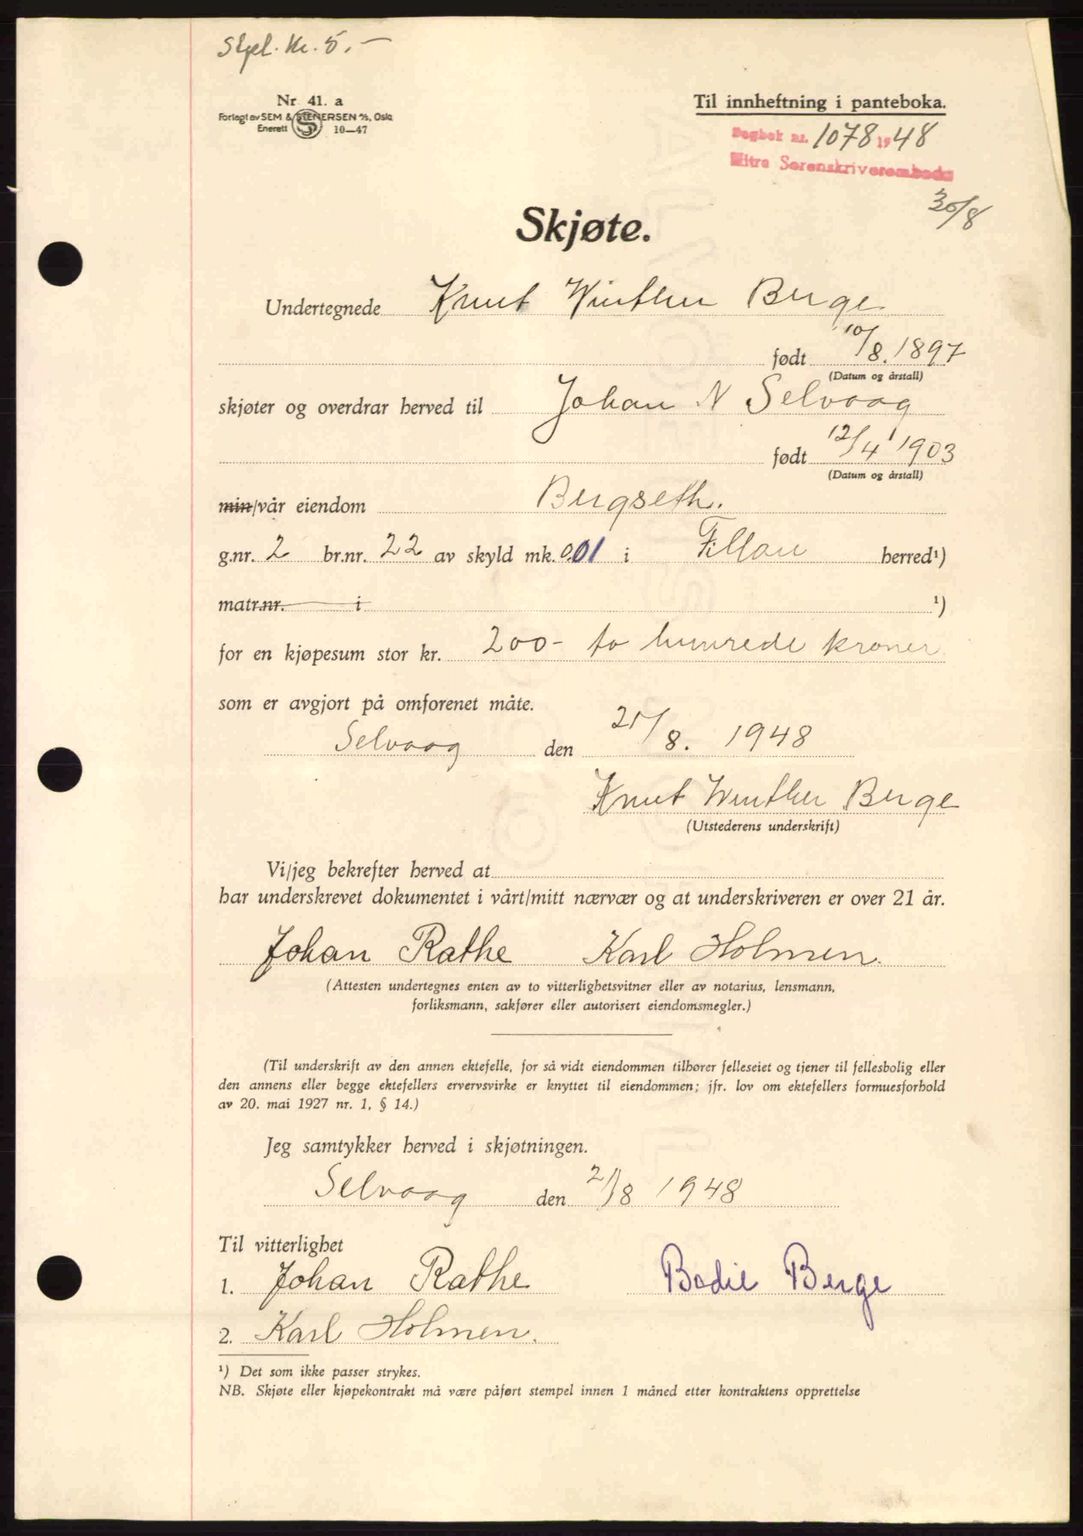 Stpl. kr. 5.-
Nr 41. a
Forlagt av SEM & STENERSEN A/S, Oslo
Enerett 10-47
Til innheftning i panteboka.
Dagbok nr. 1078 1948
Hitra Sorenskriverembede
30/8
Skjøte.
Undertegnede Knut Winther Berge
født 10/8. 1897
(Datum og årstall)
skjøter og overdrar herved til Johan N Selvaag
født 12/4 1903
(Datum og årstall)
min/vår eiendom Bergseth.
g.nr. 2 br.nr. 22 av skyld mk. 0.01 i Fillan herred¹)
matr.nr. i ¹)
for en kjøpesum stor kr. 200- to hunrede kroner
som er avgjort på omforenet måte.
Selvaag den 21/8. 1948
Knut Winther Berge
(Utstederens underskrift)
Vi/jeg bekrefter herved at
har underskrevet dokumentet i vårt/mitt nærvær og at underskriveren er over 21 år.
Johan Rathe Karl Holmen.
(Attesten undertegnes enten av to vitterlighetsvitner eller av notarius, lensmann,
forliksmann, sakfører eller autorisert eiendomsmegler.)
(Til underskrift av den annen ektefelle, for så vidt eiendommen tilhører felleseiet og tjener til fellesbolig eller
den annens eller begge ektefellers ervervsvirke er knyttet til eiendommen; jfr. lov om ektefellers formuesforhold
av 20. mai 1927 nr. 1, § 14.)
Jeg samtykker herved i skjøtningen.
Selvaag den 21/8 1948
Til vitterlighet
1. Johan Rathe Bodil Berge
2. Karl Holmen.
¹) Det som ikke passer strykes.
NB. Skjøte eller kjøpekontrakt må være påført stempel innen 1 måned etter kontraktens opprettelse